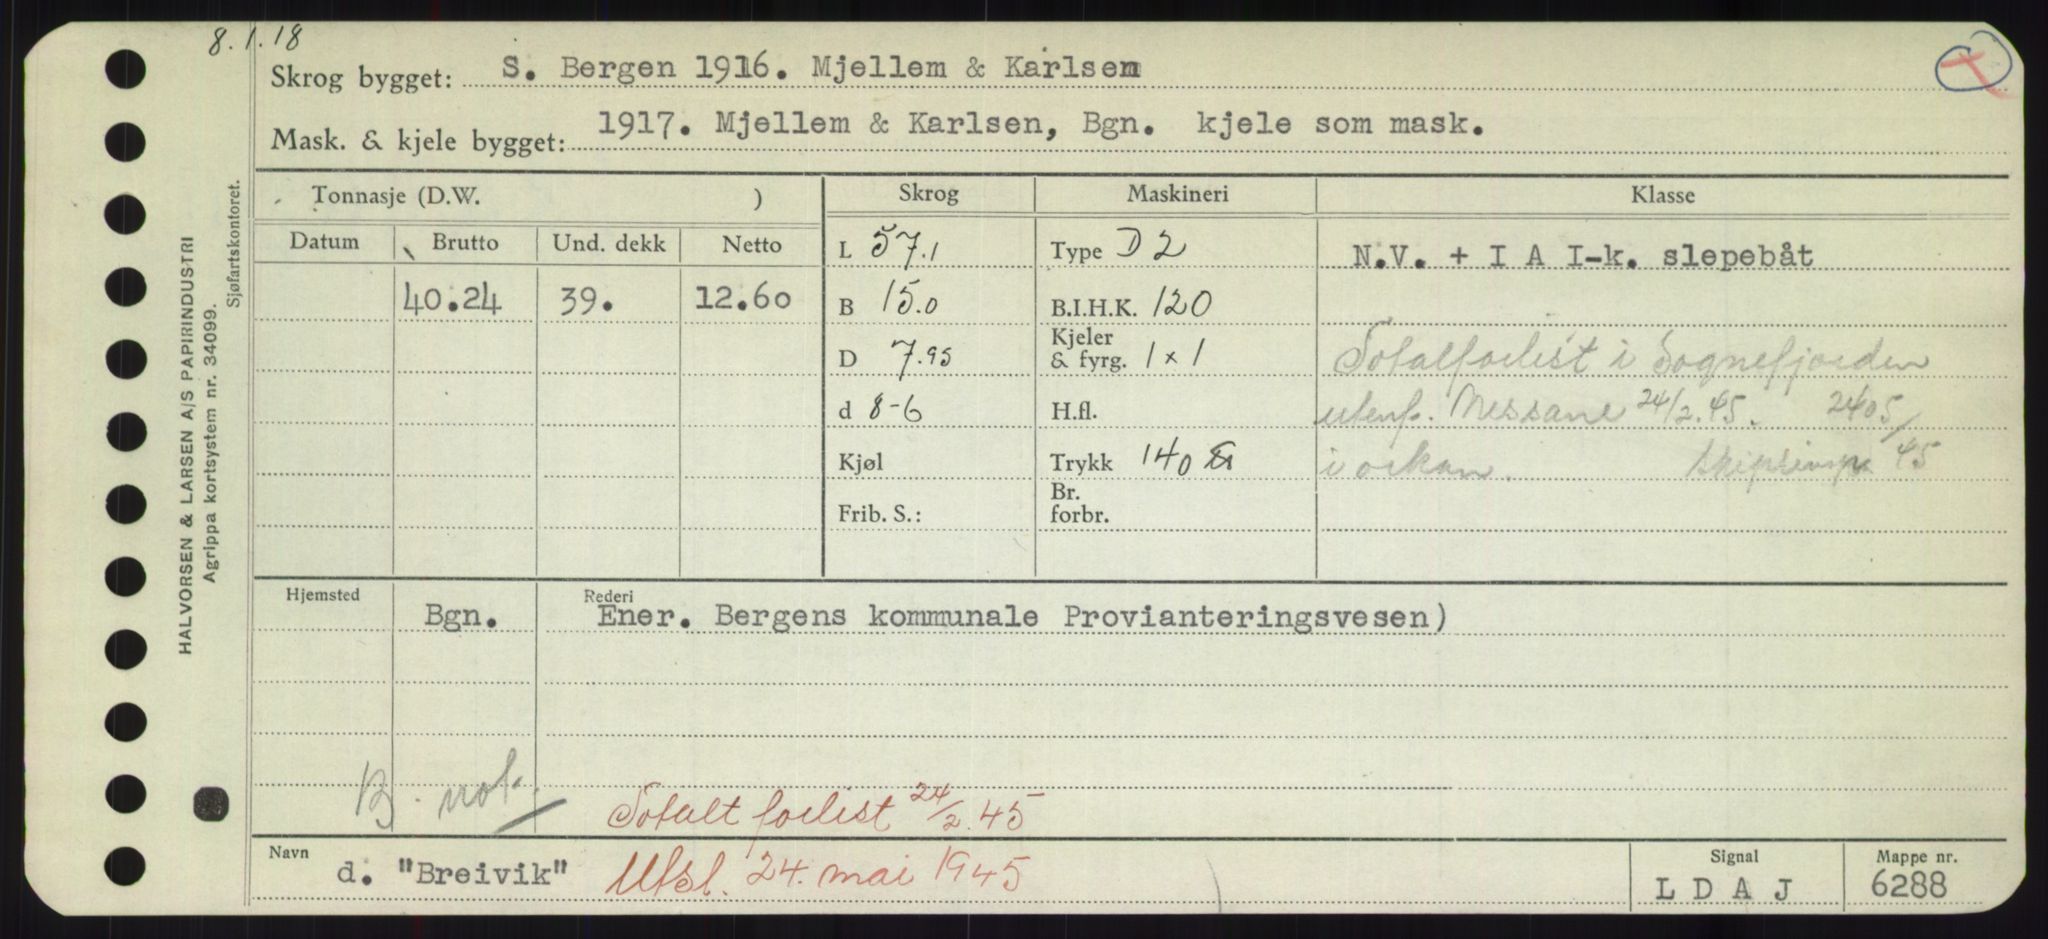 8.1.18
Skrog bygget: S. Bergen 1916. Mjellem & Karlsen
Mask. & kjele bygget: 1917. Mjellem & Karlsen, Bgn. kjele som mask.
HALVORSEN & LARSEN A/S PAPIRINDUSTRI
Agrippa kortsystem nr. 34099.
Sjøfartskontoret.
Tonnasje (D.W. ) Skrog Maskineri Klasse
Datum Brutto Und. dekk Netto
L 57.1 Type D 2 N.V. + I A I-k. slepebåt
40.24 39. 12.60 B 15.0 B.I.H.K. 120
D 7.95 Kjeler & fyrg. 1 x 1 Totalforlist i Sognefjorden
d 8-6 H.fl. utenf. Nessane 24/2.45. 2405/45
Kjøl Trykk 140 i orkan.
Frib. S.: Br. forbr.
Hjemsted Rederi
Bgn. Ener. Bergens kommunale Provianteringsvesen)
B. not.
Totalt forlist 24/2.45
Navn Signal Mappe nr.
d. "Breivik" Utsl. 24. mai 1945 L D A J 6288